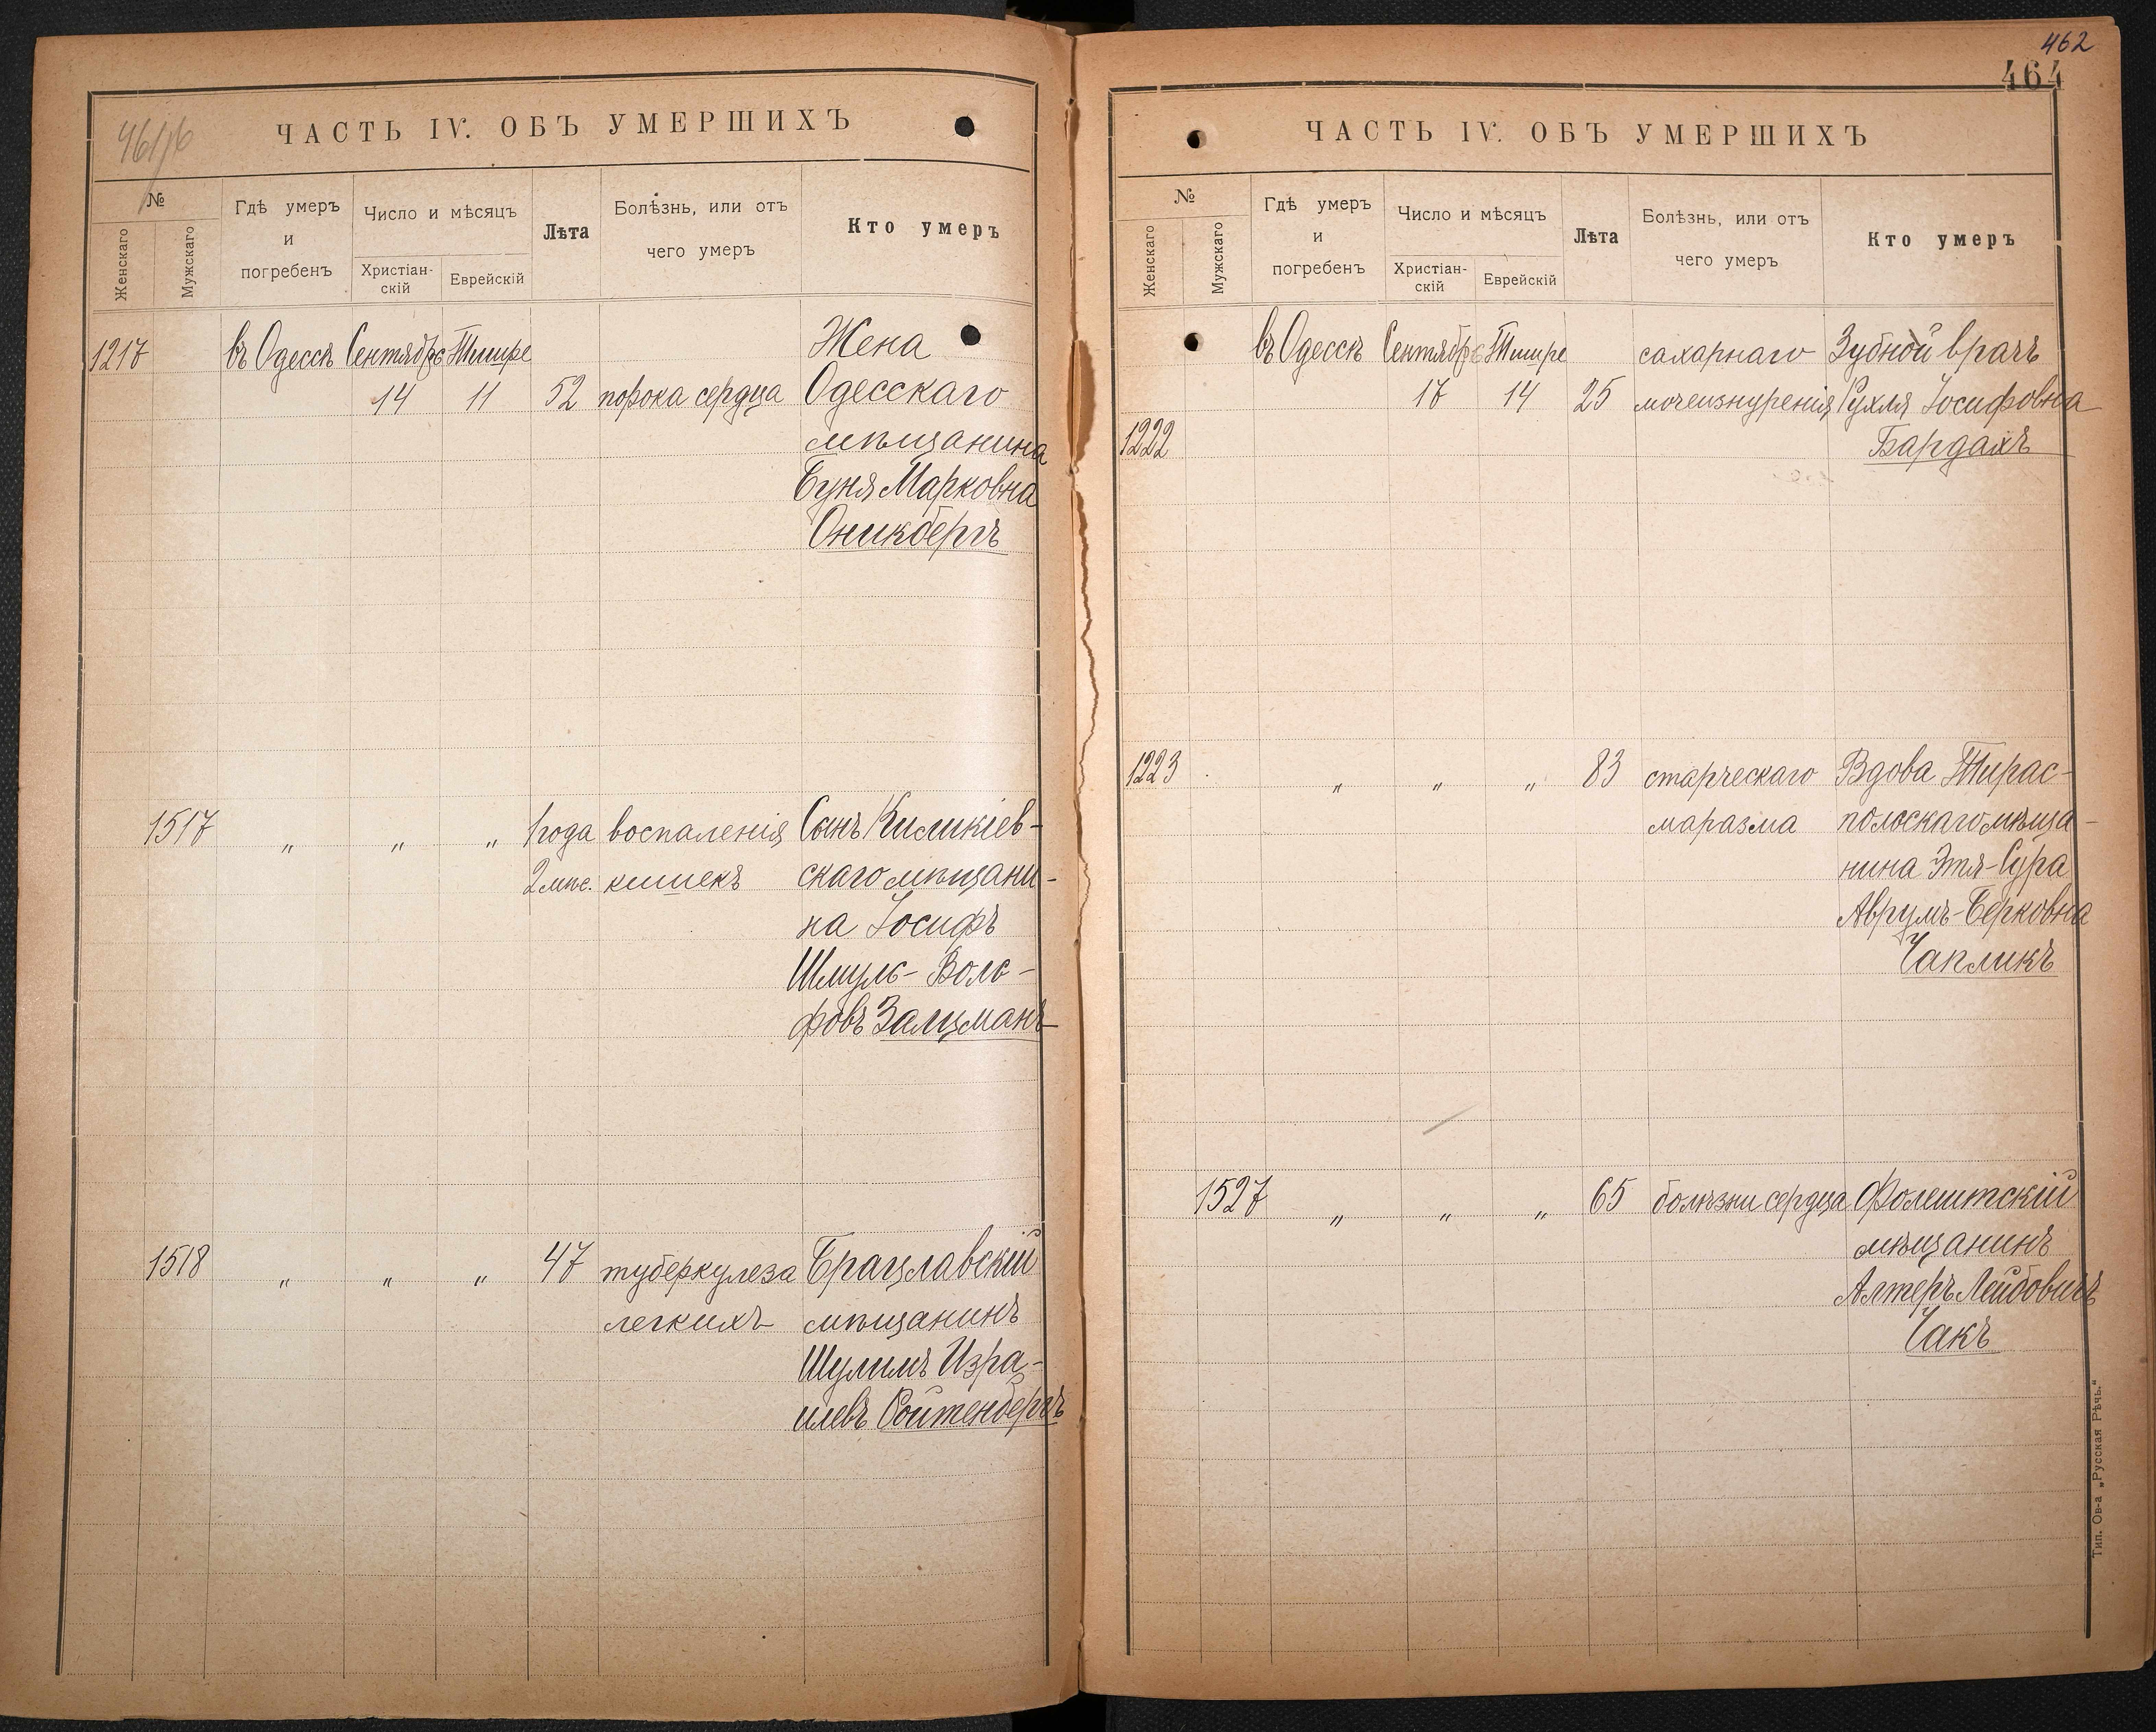 461/б
ЧАСТЬ IV. ОБЪ УМЕРШИХЪ
№
Женскаго
Мужскаго
Гдѣ умеръ
и
погребенъ
Число и мѣсяцъ
Христіан-
скій
Еврейскій
Лѣта
Болѣзнь, или отъ
чего умеръ
Кто умеръ
1217 въ Одессѣ Сентябрь Тишре Жена
14 11 52 порока сердца Одесскаго
мѣщанина
Буня Марковна
Оникбергъ
1517 " " " 1 года воспаленія Сынъ Киликіев-
2 мѣс. кишекъ скаго мѣщани-
на Іосифъ
Шмуль-Воль-
фовъ Залцманъ
1518 " " " 47 туберкулеза Брацлавскій
легкихъ мѣщанинъ
Шулимъ Изра-
илевъ Ройтенбергъ
462
464
ЧАСТЬ IV. ОБЪ УМЕРШИХЪ
№
Женскаго
Мужскаго
Гдѣ умеръ
и
погребенъ
Число и мѣсяцъ
Христіан-
скій
Еврейскій
Лѣта
Болѣзнь, или отъ
чего умеръ
Кто умеръ
въ Одессѣ Сентябрь Тишре сахарнаго Зубной врачъ
17 14 25 мочеизнуренія Рухля Іосифовна
1222 Бардахъ
1223 " " " 83 старческаго Вдова Тирас-
маразма польскаго мѣща-
нина Этя-Сура
Аврумъ-Берковна
Чапликъ
1527 " " " 65 болѣзни сердца Фолештскій
мѣщанинъ
Алтеръ Лейбовичъ
Чакъ
Тип. Ов-а „Русская Рѣчь."